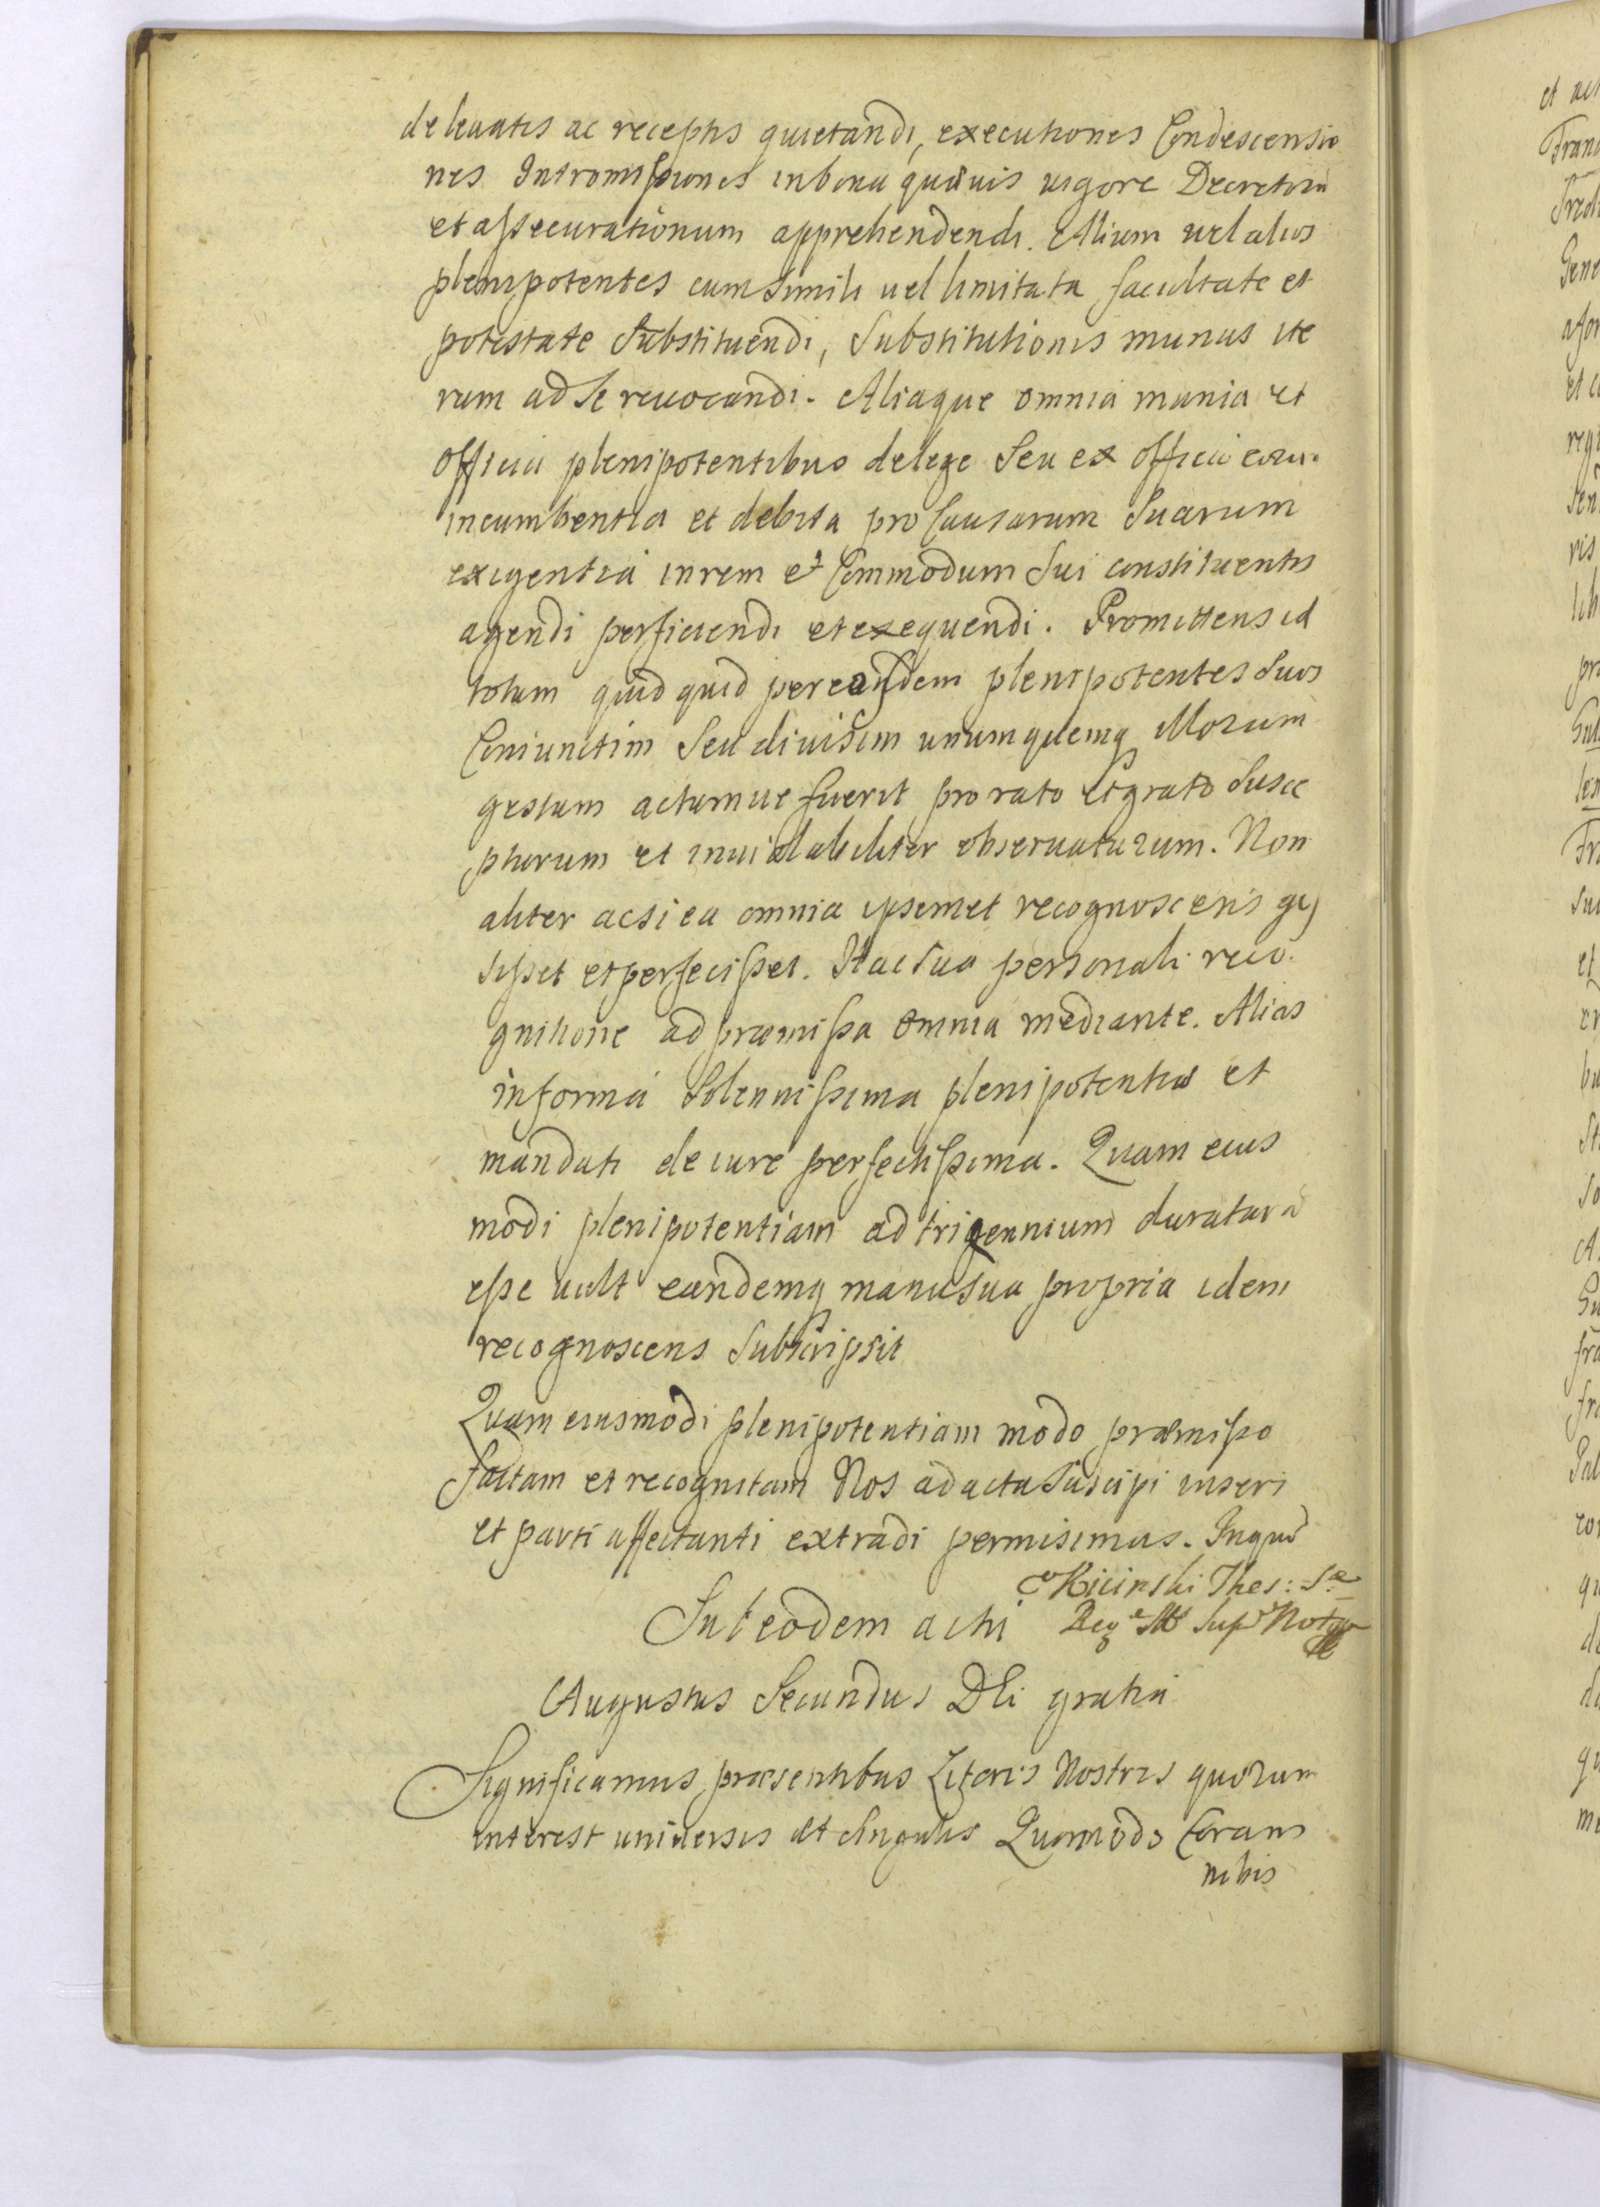 de levatis ac receptis quietandi, executiones Condescensio
nes Intromissiones in bona quævis vigore Decretorū
et assecurationum apprehendendi. Alium vel alios
plenipotentes cum simili vel limitata facultate et
potestate Substituendi, Substitutionis munus ite
rum ad Se revocandi. Aliaque omnia munia et
officia plenipotentibus de lege Seu ex officio eorum
incumbentia et debita pro Causarum Suarum
exigentia in rem et Commodum Sui constituentis
agendi perficiendi et exequendi. Promittens id
totum quidquid per eosdem plenipotentes Suos
Coniunctim Seu divisim unumquemq illorum
gestum actumve fuerit pro rato et grato Susce
pturum et inviolabiliter observaturum. Non
aliter ac si ea omnia ipsemet recognoscens ges
sisset et perfecisset. Hac Sua personali reco
gnitione ad præmissa omnia mediante. Alias
in forma Solennissima plenipotentiæ et
mandati de iure perfectissima. Quam eius
modi plenipotentiam ad trigennium duraturā
esse vult eandemq manu Sua propria idem
recognoscens Subscripsit
Quam eiusmodi plenipotentiam modo præmisso
factam et recognitam Nos ad acta Suscipi inseri
et parti affectanti extradi permisimus. In quo
Kicinski Thes: Sæ
Sub eodem actu
Augustus Secundus DEi gratia
Significamus præsentibus Literis Nostris quorum
interest universis et Singulis Quomodo Coram
nobis
et
Fran
Gene
et